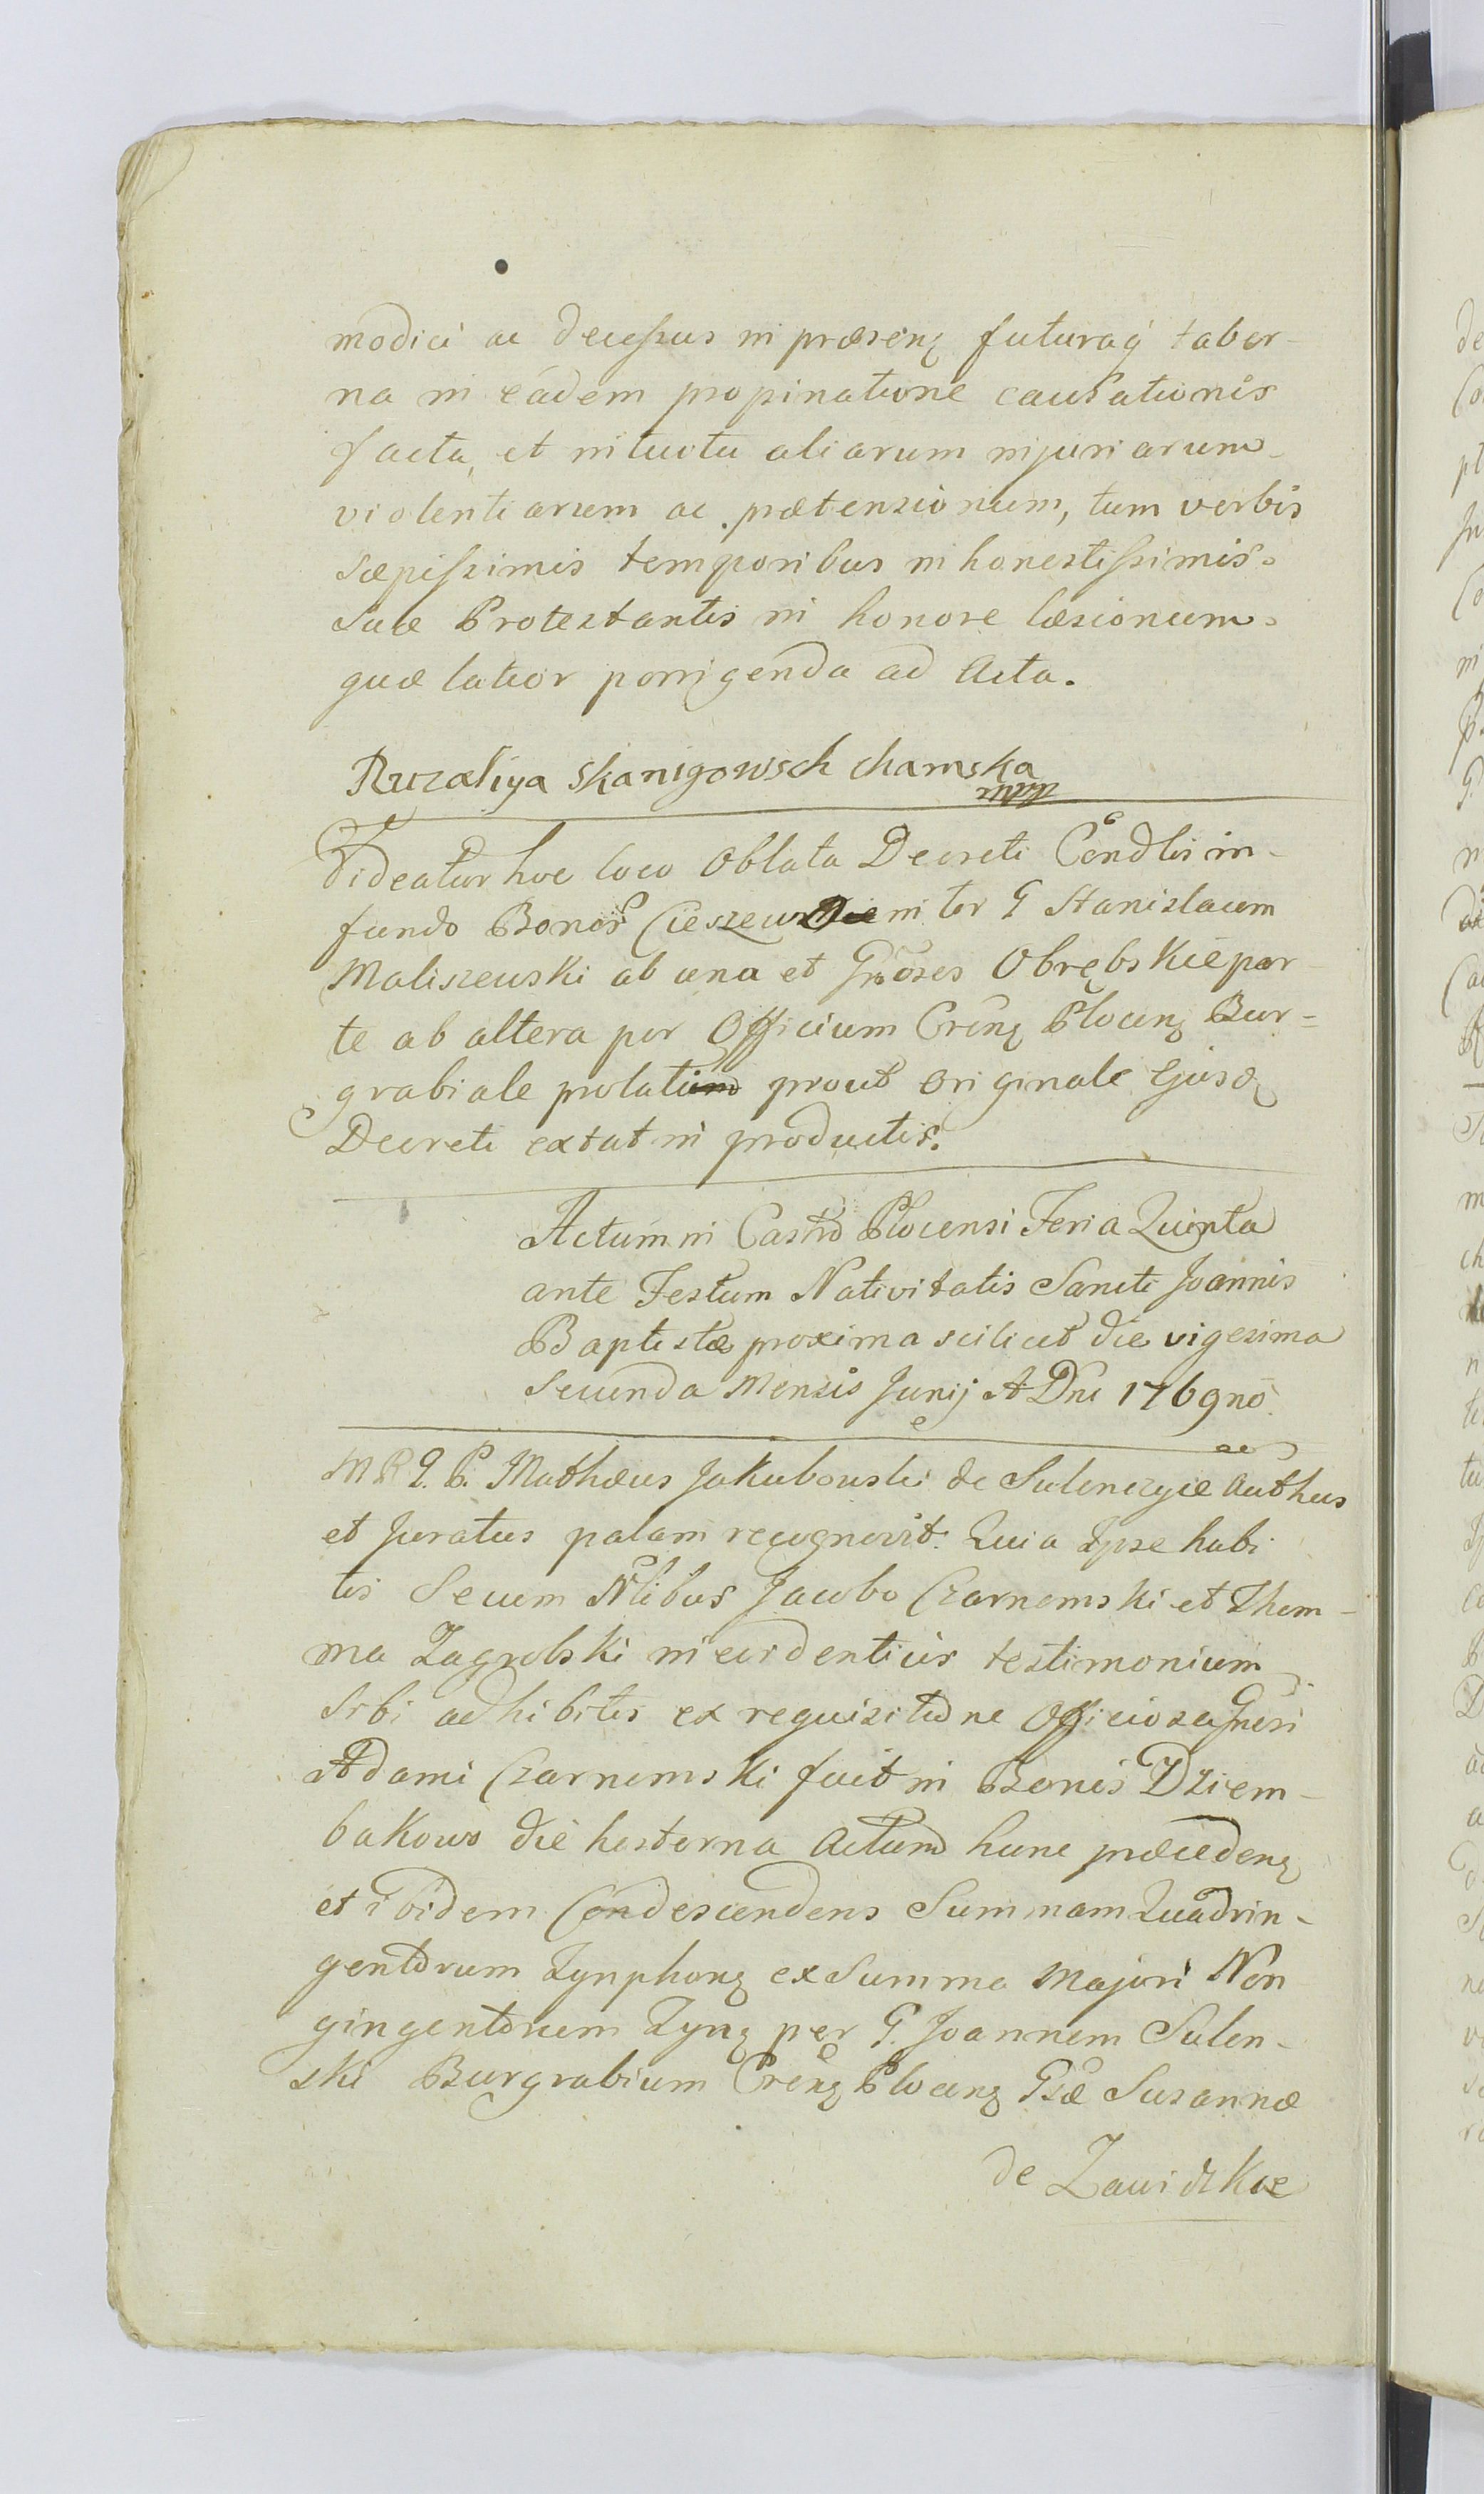 modici ac decessus in præsenq futuraq́ taber-
na in eadem propinatione causationis
facta, et intuitu aliarum injuriarum
violentiarum ac prætensionum, tum verbis
sæpissimis temporibus inhonestissimis
suæ Protestantis in honore læsionum
quæ latior porrigenda ad Acta.
Ruzaliya Skanigowsch chamska
Videatur hoc loco Oblata Decreti Condlis in
fundo Bonor Cieszewo inter G Stanislaum
Maliszewski ab una et Gnosos Obrębskie par-
te ab altera per Officium Crenq Plocenq Bur=
grabiale prolati prout Originale Ejusd
Decreti extat in productis.
Actum in Castro Plocensi Feria Quinta
ante Festum Nativitatis Sancti Joannis
Baptistæ proxima scilicet die vigesima
secunda Mensis Junij A Dni 1769no
MR q. P. Mathæus Jakubowski de Sulenczyce Authus
et Juratus palam recognovit. Quia Ipse habi
tis Secum Nlibus Jacobo Czarnomski et Thom-
ma Zagrobski in evidentius testimonium
Sibi adhibitis ex requisitione Officiosa Gnesi
Adami Czarnomski fuit in Bonis Dziem-
bakowo die hesterna Actum hunc præcedenq
et ibidem Condescendens Summam Quadrin-
gentorum Tynphonq ex Summa Majori Non
gingentorum Tynq per G. Joannem Sulen-
ski Burgrabium Crenq Plocenq Gsæ Susannæ
de Zawidzkie